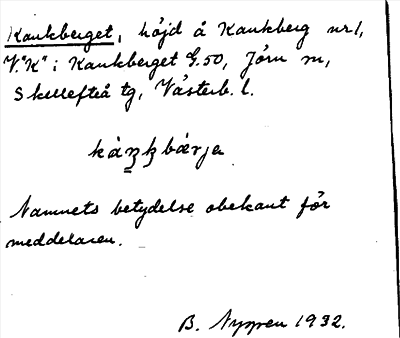 Kankberget, höjd å Kankberg nr 1,
V."K"; Kankberget G.50, Jörn sn,
Skellefteå tg, Västerb. l.
Namnets betydelse obekant för
meddelaren.
B. Nygren 1932.